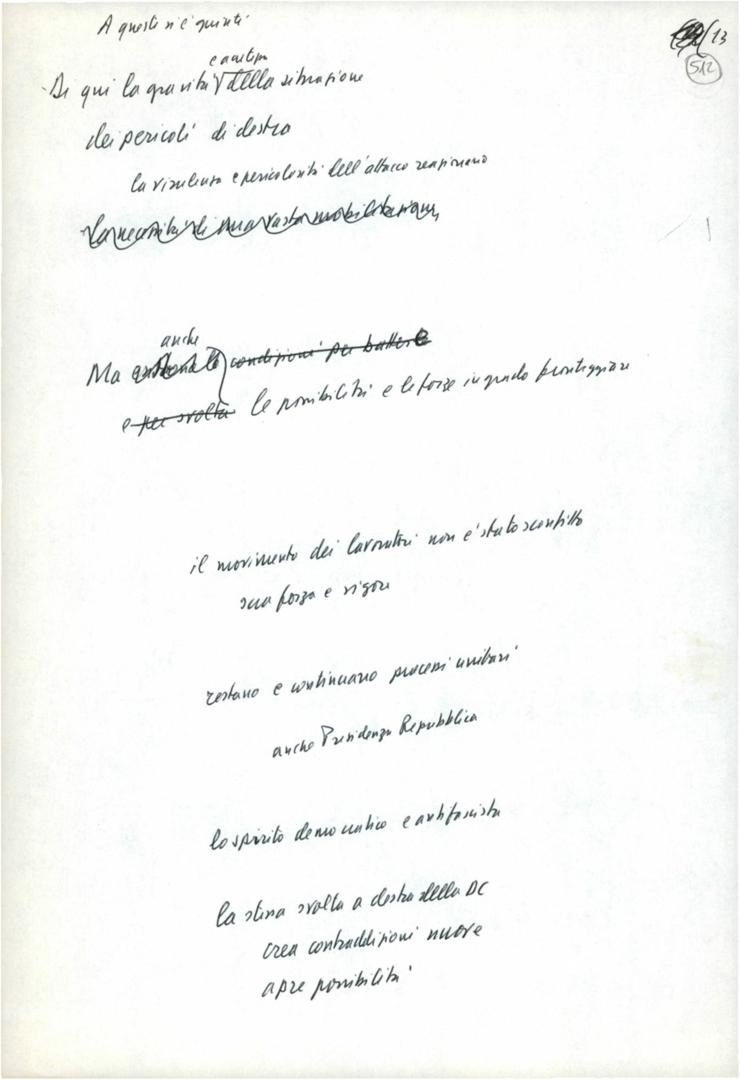 13
512
A questo si è giunti
Di qui la gravità della situazione
dei pericoli di destra
la virulenza e pericolosità dell'attacco reazionario
la necessità di una vasta mobilitazione
anche
Ma esistono le condizioni per battere
e per svolta le possibilità e le forze in grado fronteggiare
il movimento dei lavoratori non è stato sconfitto
sua forza e vigore
restano e continuano processi unitari
anche Presidenza Repubblica
lo spirito democratico e antifascista
la stessa svolta a destra della DC
crea contraddizioni nuove
apre possibilità